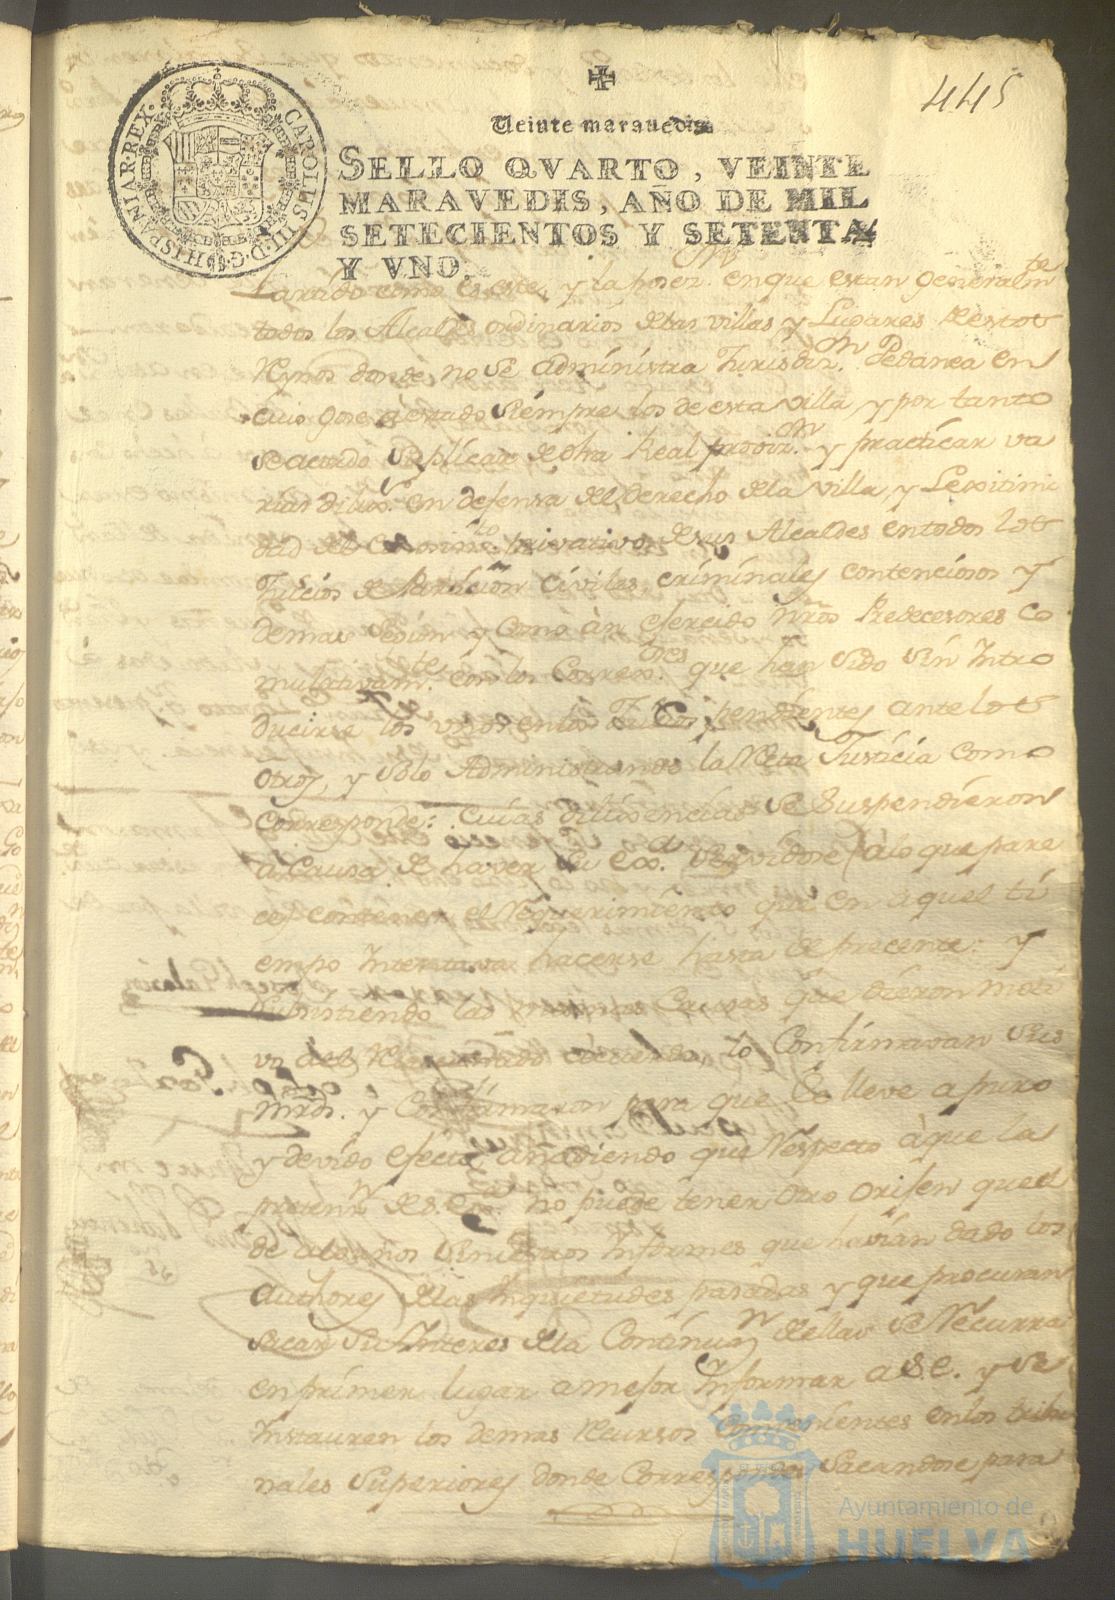 445
Veinte marauedis
SELLO QVARTO, VEINTE
MARAVEDIS, AÑO DE MIL
SETECIENTOS Y SETENTA
Y VNO.
CAROLUS III D.G. HISPANIAR. REX.
Partido como es este, y la poses.on en que estan generalm.te
todos los Alcaldes ordinarios de las villas y Lugares de estos
Reynos donde no se administra Jurisdiz.on Pedanea en
cuio gose an estado siempre los de esta villa, y por tanto
se acordo suplicar de dha Real proviz.on y practicar va
rias dilix.s en defensa del derecho de la villa, y Lexitimi
dad del conosim.to privativo de sus Alcaldes en todos los
Juicios de Partición civiles, criminales contenciosos y
demas según y como àn ejercido nros Predecesores co
mulativam.te con los Correx.res que han sido sin Intro
ducirse los unos en los Juicios pendientes ante los
otros, y solo Administrando la Recta Justicia como
Corresponde: cuias dilixencias se suspendieron
a causa de haver su Exa. servidose (a lo que pare
ce) contener el Requerimiento que en aquel ti
empo Intentava hacerse hasta de precente: y
subsistiendo las mismas Causas que dieron moti
vo al Relacionado acuerdo, lo Confirmavan sus
mrds. y Confirmaron para que se lleve a puro
y devido efecto añadiendo que Respecto à que la
preten.n de S. Exa. no puede tener otro orijen que el
de algunos siniestros Informes que havian dado los
authores de las Inquietudes pasadas y que procuran
sacar su Interes de la Continua.n de ellas se Recurra
en primer lugar a mejor Informar a S.E. y se
Instauren los demas Recursos Combenientes en los tribu
nales Superiores donde Corresponda sacandose para
Ayuntamiento de
HUELVA